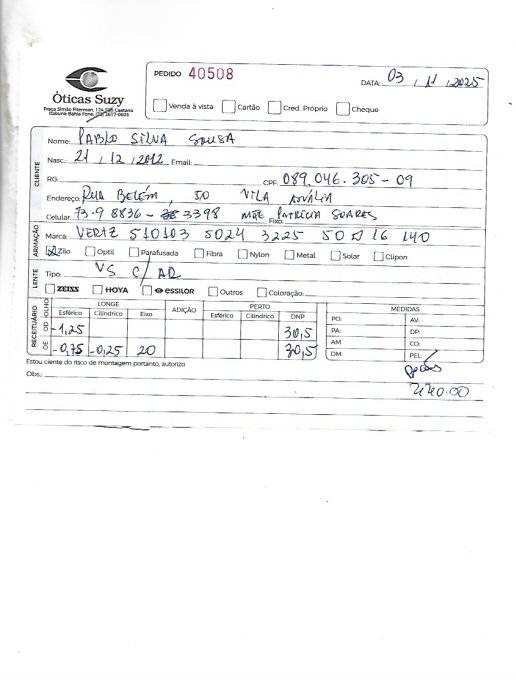 Óticas Suzy
Praça Simão Fiterman, 124 São Caetano
Itabuna-Bahia Fone: (73) 3617-0603
PEDIDO 40508
DATA: 03 / 11 / 2025
Venda à vista Cartão Cred. Próprio Cheque
CLIENTE
Nome: PABLO SILVA SOUSA
Nasc: 21 / 12 / 2012 Email:
RG: CPF: 089.046.305-09
Endereço: RUA BELÉM, 50 VILA
Celular: 73-9 8836- 3398 Fixo: MÃE PATRÍCIA SOARES
ARMAÇÃO
Marca: 510103 5024 3225 50 16 140
Zilo Optil Parafusada Fibra Nylon Metal Solar Clipon
LENTE
Tipo: VS C/ AR
ZEISS HOYA essilor Outros Coloração:
RECEITUÁRIO
OLHO LONGE ADIÇÃO PERTO DNP MEDIDAS
Esférico Cilíndrico Eixo Esférico Cilíndrico
OD -1,25 30,5
OE -0,75 -0,25 20 30,5
PO: AV:
PA: DP:
AM: CO:
DM: PEL:
Estou ciente do risco de montagem portanto, autorizo
Obs.: